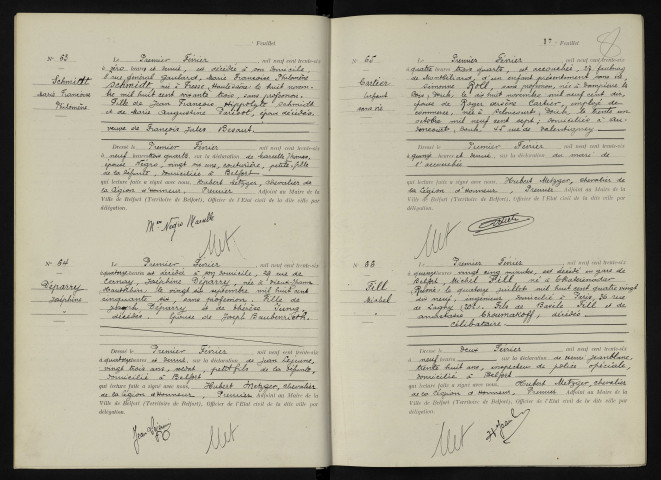 Feuillet
N° 63
Schmidt
Marie Françoise
Philomène
Le Premier Février mil neuf cent trente-six
à zéro heure et demie, est décédée à son domicile,
rue général Gaulard, Marie Françoise Philomène
Schmidt, née à Fresse, Haute-Saône le huit novembre
mil huit cent soixante trois, sans profession.
Fille de Jean François Hippolyte Schmidt
et de Marie Augustine, époux décédés.
veuve de François Jules Besnut.
Dressé le Premier Février
à neuf heures trois quarts, sur la déclaration de Marcelle
épouse Négro, vingt six ans, couturière, petite fille
de la défunte, domiciliée à Belfort
qui lecture faite a signé avec nous, Hubert Metzger, chevalier de
la Légion d'Honneur, Premier Adjoint au Maire de la
Ville de Belfort (Territoire de Belfort), Officier de l'Etat civil de la dite ville par
délégation.
Mme Négro Marcelle
N° 64
Déparry
Joséphine
"
Le Premier Février mil neuf cent trente-six
à quatorze heures est décédée à son domicile, 29 rue de
Cernay, Joséphine Déparry, née à Vieux-Thann
Haut-Rhin, le vingt et septembre mil huit cent
cinquante six, sans profession. Fille de
Joseph Déparry et de Thérèse Jung,
décédés. Epouse de Joseph
Dressé le Premier Février
à quatorze heures et demie, sur la déclaration de Jean
vingt trois ans, petit fils de la défunte,
domicilié à Belfort
qui lecture faite a signé avec nous, Hubert Metzger, chevalier
de la Légion d'Honneur, Premier Adjoint au Maire de la
Ville de Belfort (Territoire de Belfort), Officier de l'Etat civil de la dite ville par
délégation.
17 Feuillet
8
N° 65
Cartier
Enfant
sans vie
Le Premier Février mil neuf cent trente-six
à quatre heures trois quarts, est accouchée, 23 faubourg
de Montbéliard, d'un enfant présentement sans vie,
Simonne Roll, sans profession, née à Dampierre le
Bois, Doubs, le dix huit novembre mil neuf cent dix,
épouse de Roger Cartier, employé de
commerce, né à Doubs, le trente un
octobre mil neuf cent sept; domiciliés à
Audincourt, Doubs, 45 rue de Valentigney
Dressé le Premier Février
à quinze heures et demie, sur la déclaration du mari de
l'accouchée
qui lecture faite a signé avec nous, Hubert Metzger, chevalier de
la Légion d'Honneur, Premier Adjoint au Maire de la
Ville de Belfort (Territoire de Belfort), Officier de l'Etat civil de la dite ville par
délégation.
N° 66
Fill
Michel
"
Le Premier Février mil neuf cent trente-six
à quinze heures vingt cinq minutes, est décédé en gare de
Belfort, Michel Fill, né à
le quatorze juillet mil huit cent quatre vingt
dix neuf, ingénieur, domicilié à Paris, 36 rue
de. Fils de Fill et de
décédés
célibataire.
Dressé le deux Février
à neuf heures, sur la déclaration de Henri Jeanblanc,
trente huit ans, inspecteur de police spéciale,
domicilié à Belfort
qui lecture faite a signé avec nous, Hubert Metzger, chevalier
de la Légion d'Honneur, Premier Adjoint au Maire de la
Ville de Belfort (Territoire de Belfort), Officier de l'Etat civil de la dite ville par
délégation.